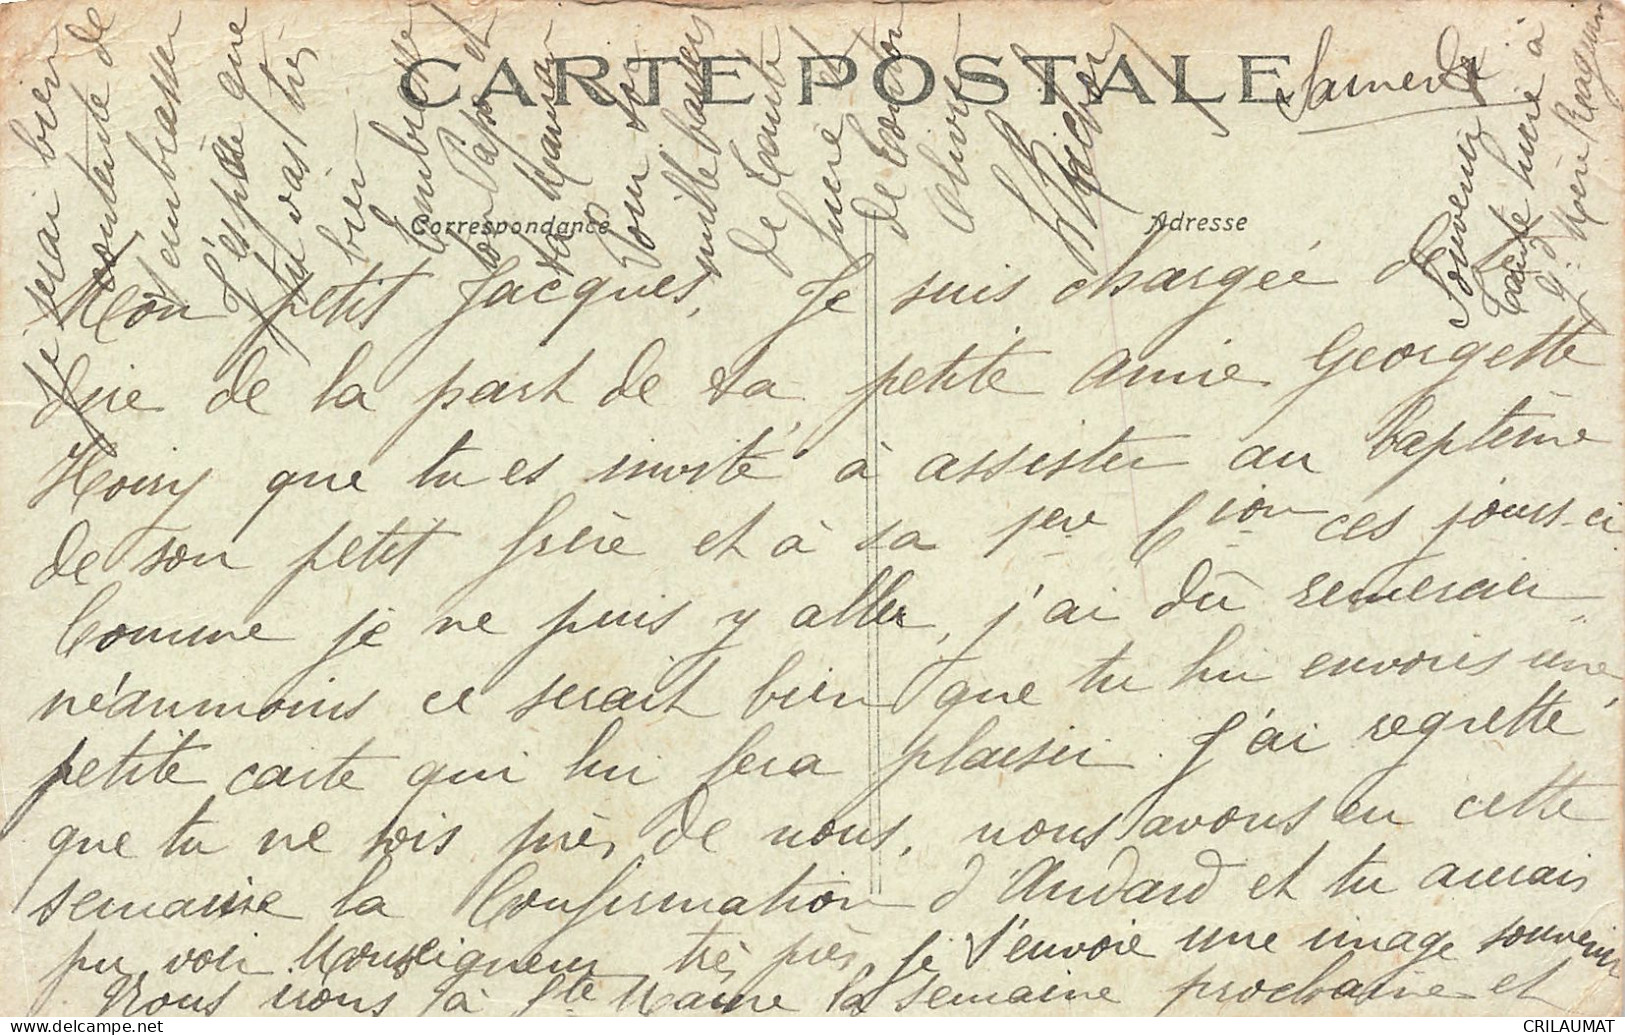 CARTE POSTALE
Samedi
Correspondance
Adresse
Mon petit Jacques, Je suis chargée de te
dire de la part de ta petite amie Georgette
que tu es invité à assister au baptême
de son petit frère et à sa 1ère Cion ces jours-ci
Comme je ne puis y aller, j'ai dû remercier
néanmoins ce serait bien que tu lui envoies une
petite carte qui lui fera plaisir. J'ai regretté
que tu ne sois près de nous, nous avons eu cette
semaine la Confirmation d'Andard et tu aurais
pu voir Monseigneur très près, je t'envoie une image souvenir
Nous irons à Ste Marie la semaine prochaine et
je serai bien
contente de
t'embrasser
J'espère que
tu vas très
bien
Embrasse
ton Papa et
ta Maman
pour moi
mille baisers
de Tante
Lucie et
de Tonton
Olivier
Souvenir
Tante Lucie à
Gd Mère